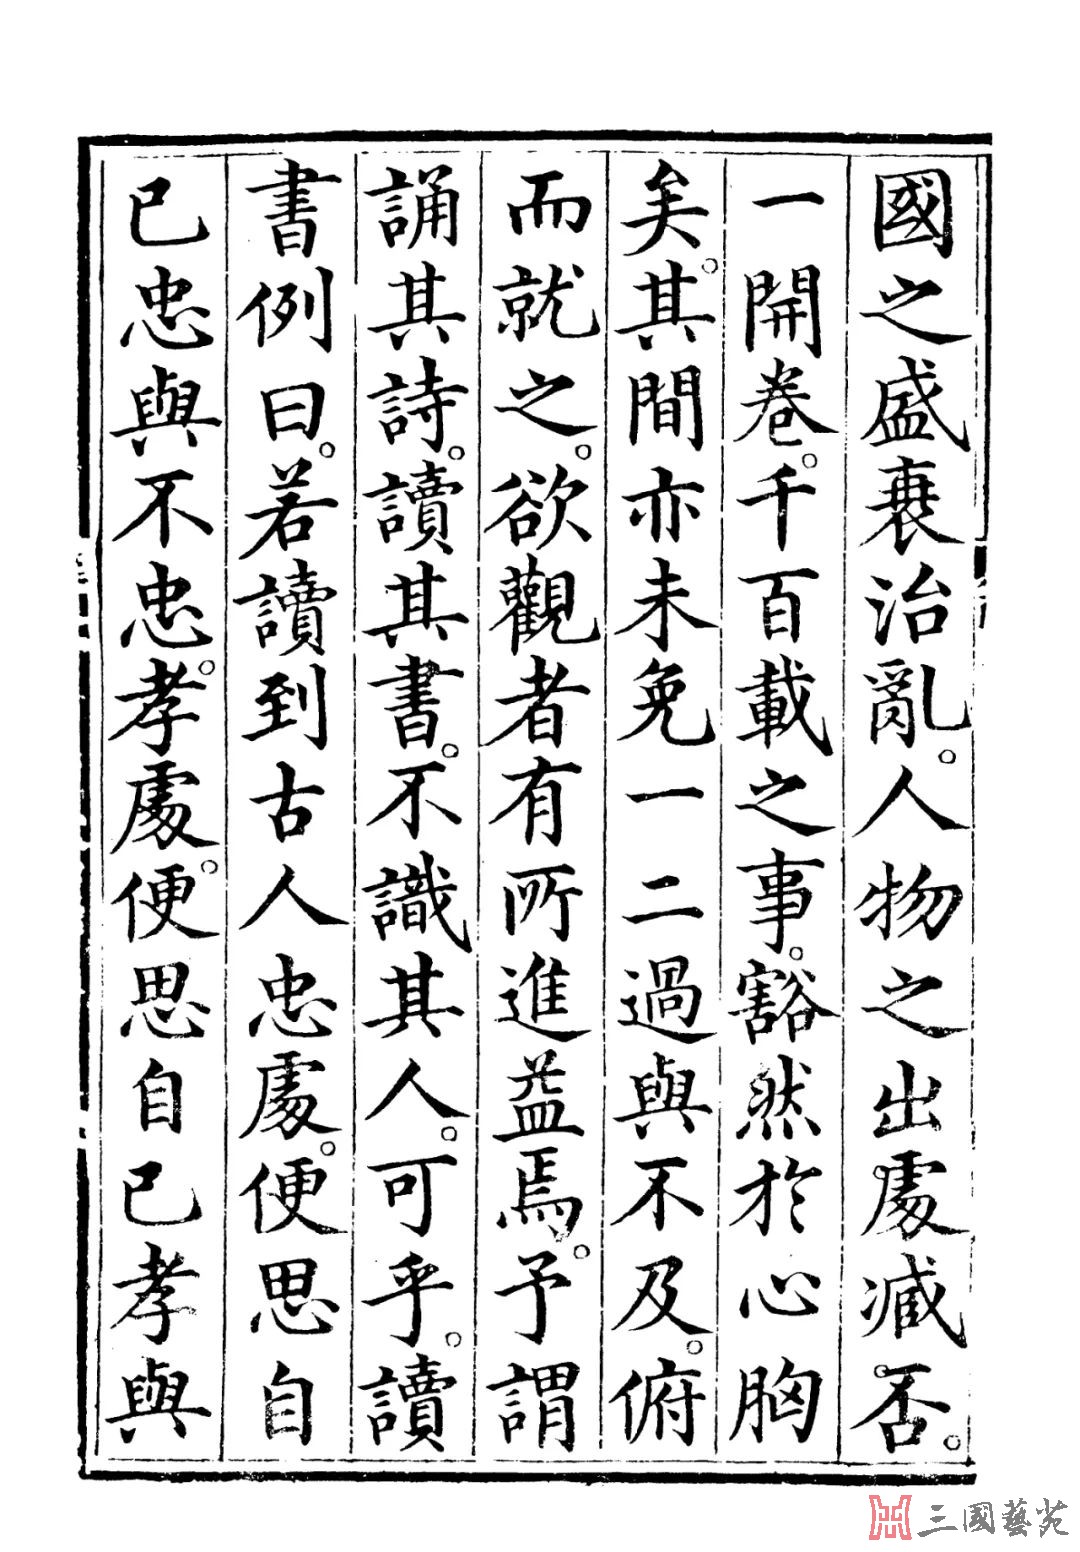 國之盛衰治亂。人物之出處臧否。
一開卷。千百載之事。豁然於心胸
矣。其間亦未免一二過與不及。俯
而就之。欲觀者有所進益焉。予謂
誦其詩。讀其書。不識其人。可乎。讀
書例曰。若讀到古人忠處。便思自
已忠與不忠。孝處。便思自已孝與
三國藝苑